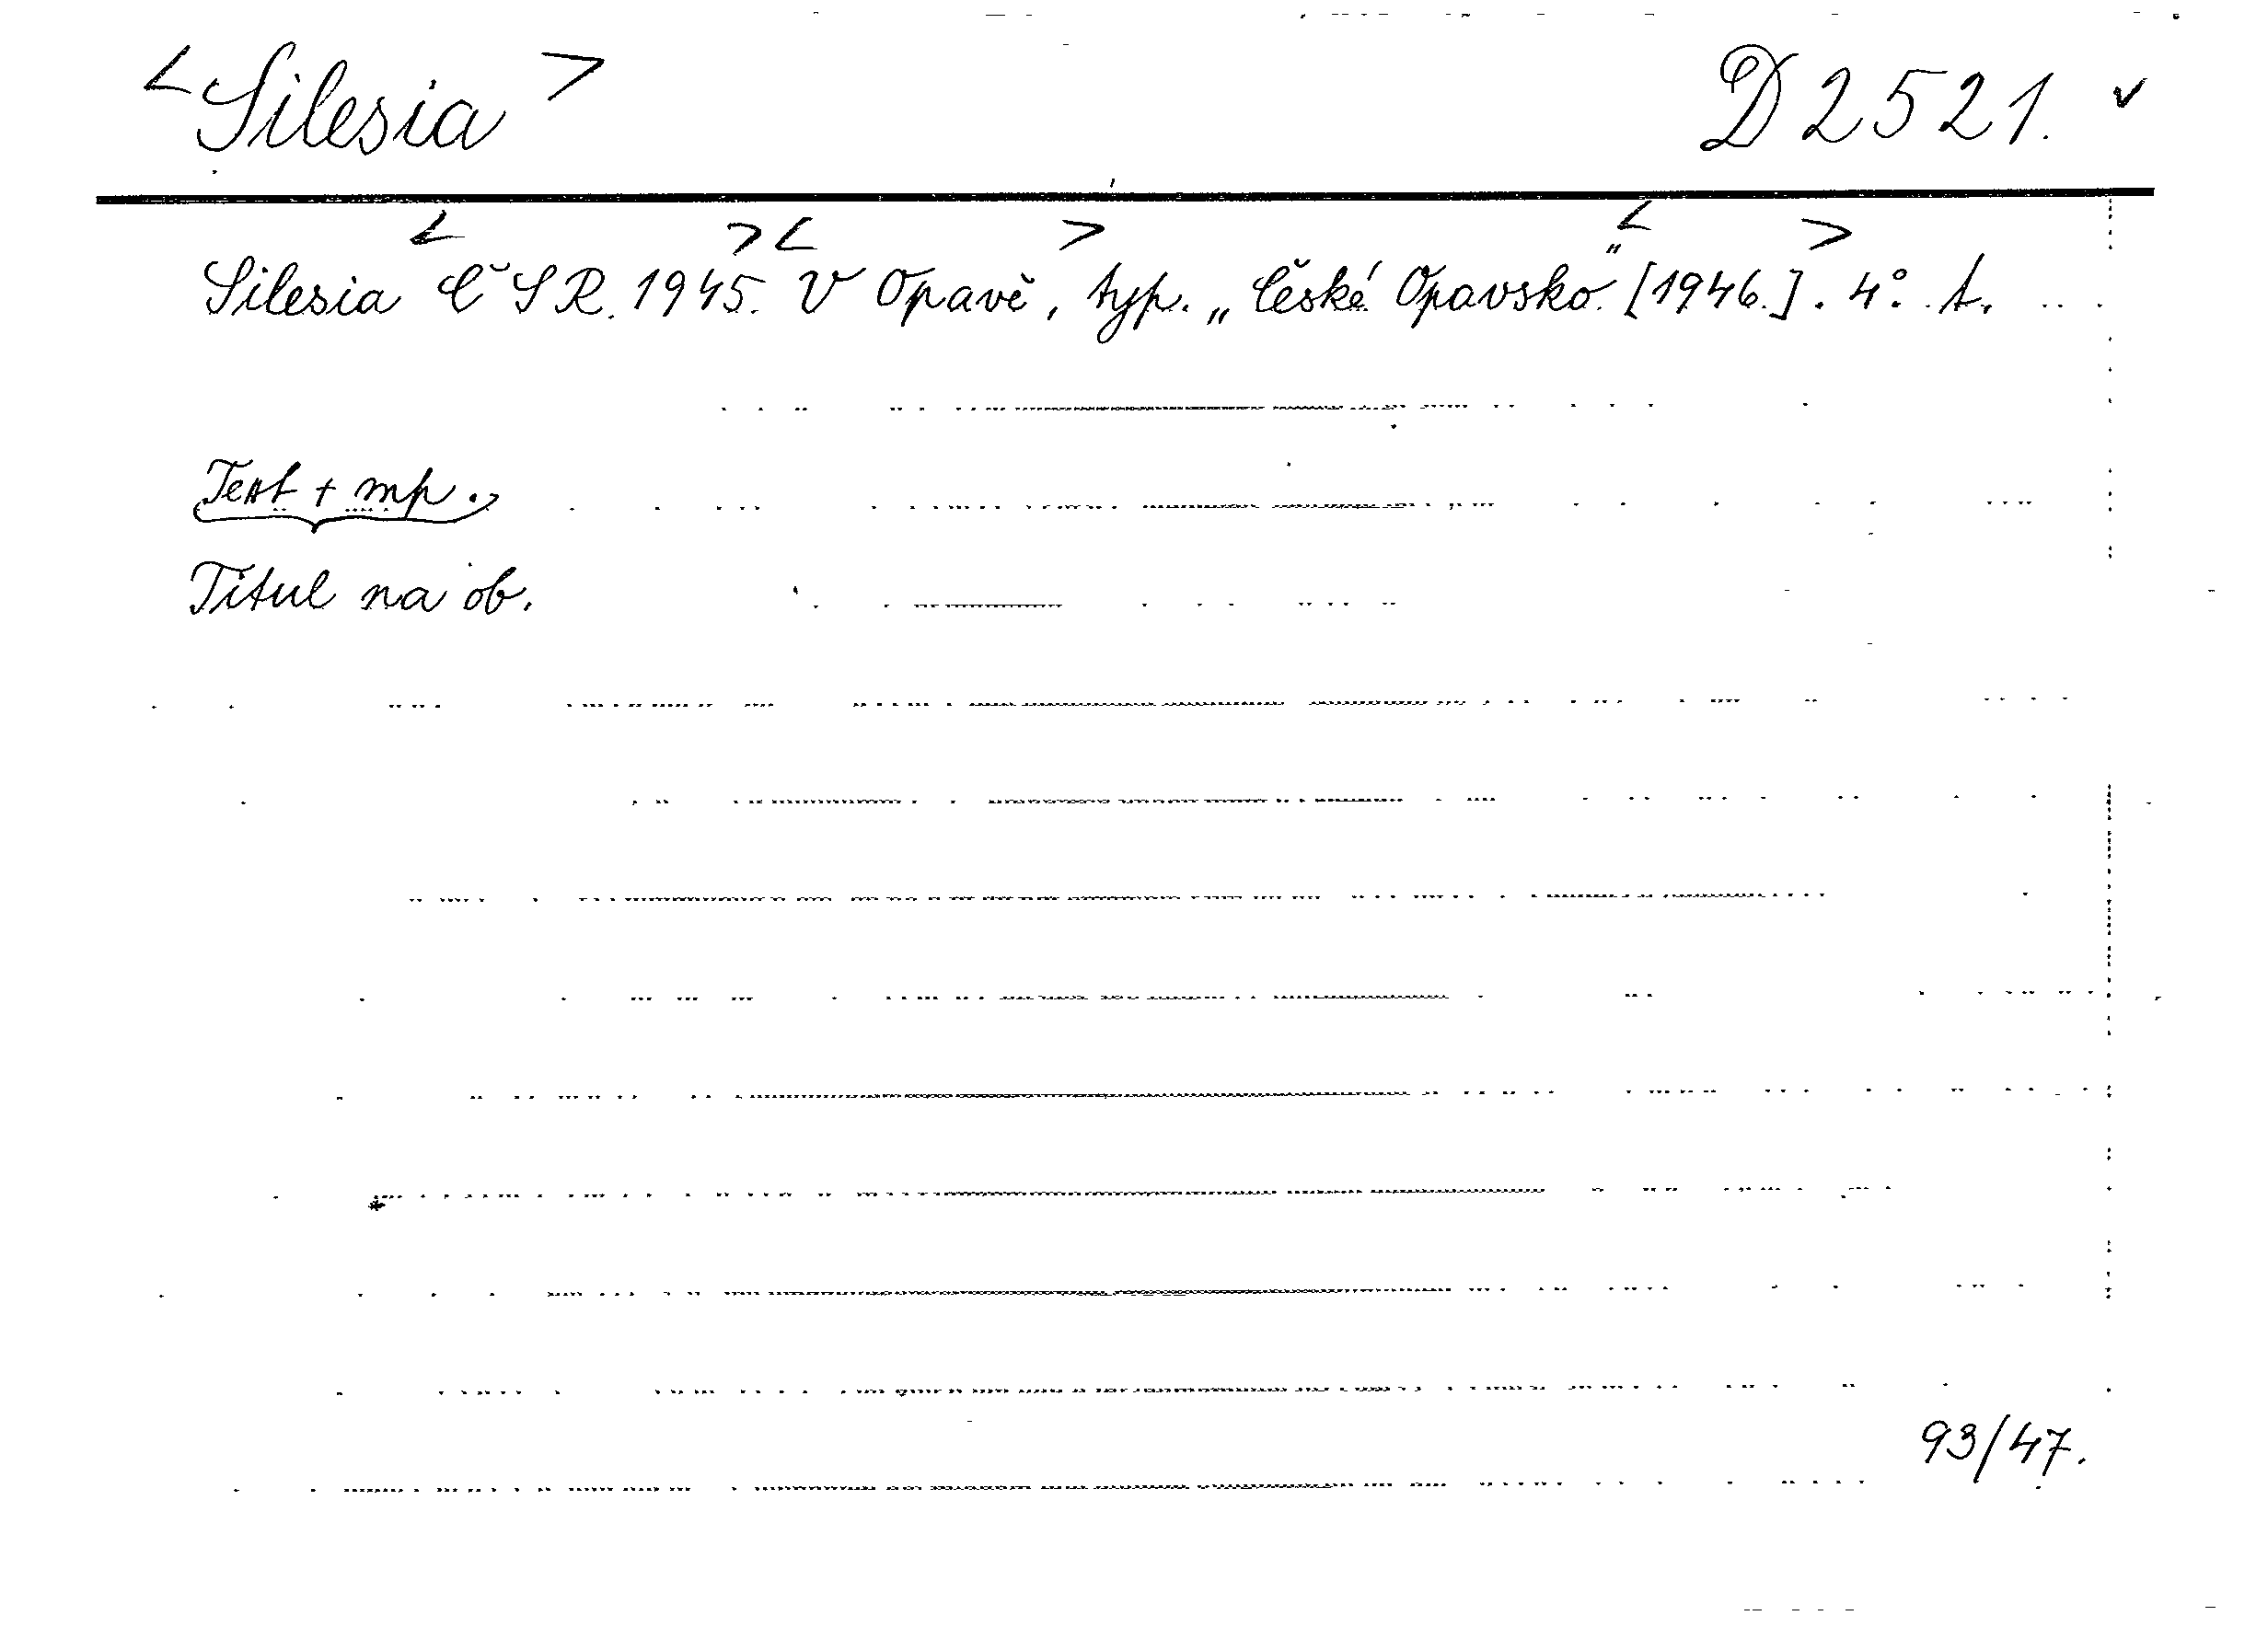 <Silesia> D 2521. v
Silesia <ČSR. 1945.> <V Opavě,> typ. „České Opavsko.“ <[1946.]>. 4°. t.
Text + mp.
Titul na ob.
93/47.